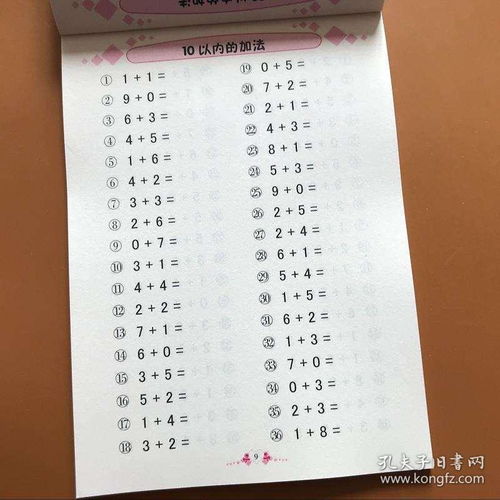 10以内的加法
① 1+1=
② 9+0=
③ 6+3=
④ 4+5=
⑤ 1+6=
⑥ 4+2=
⑦ 3+3=
⑧ 2+6=
⑨ 0+7=
⑩ 3+1=
⑪ 4+4=
⑫ 2+2=
⑬ 7+1=
⑭ 6+0=
⑮ 3+5=
⑯ 5+2=
⑰ 1+4=
⑱ 3+2=
⑲ 0+5=
⑳ 7+2=
㉑ 2+1=
㉒ 4+3=
㉓ 8+1=
㉔ 5+3=
㉕ 9+0=
㉖ 2+5=
㉗ 2+4=
㉘ 6+1=
㉙ 5+4=
㉚ 1+5=
㉛ 6+2=
㉜ 1+3=
㉝ 7+0=
㉞ 0+3=
㉟ 2+3=
㊱ 1+8=
9
孔夫子旧书网
www.kongfz.com